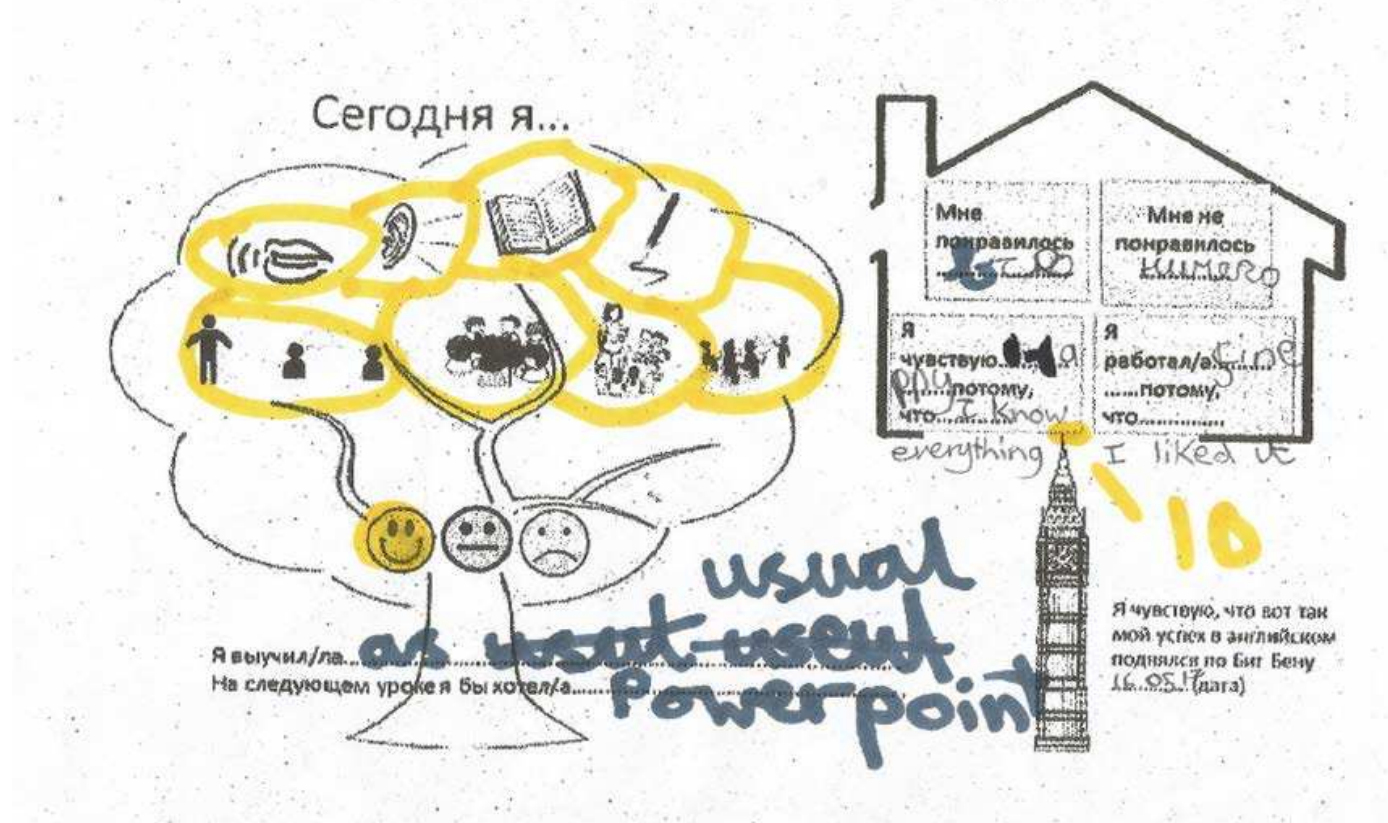 Сегодня я...
Мне
понравилось
Мне не
понравилось
ничего
Я
чувствую.......Ha
ppy......потому,
что.....I know
everything
Я
работал/а fine
......потому,
что..............
I liked it
10
usual
Я выучил/ла...as
На следующем уроке я бы хотел/а...Powerpoint
Я чувствую, что вот так
мой успех в английском
поднялся по Биг Бену
16.05.17 (дата)